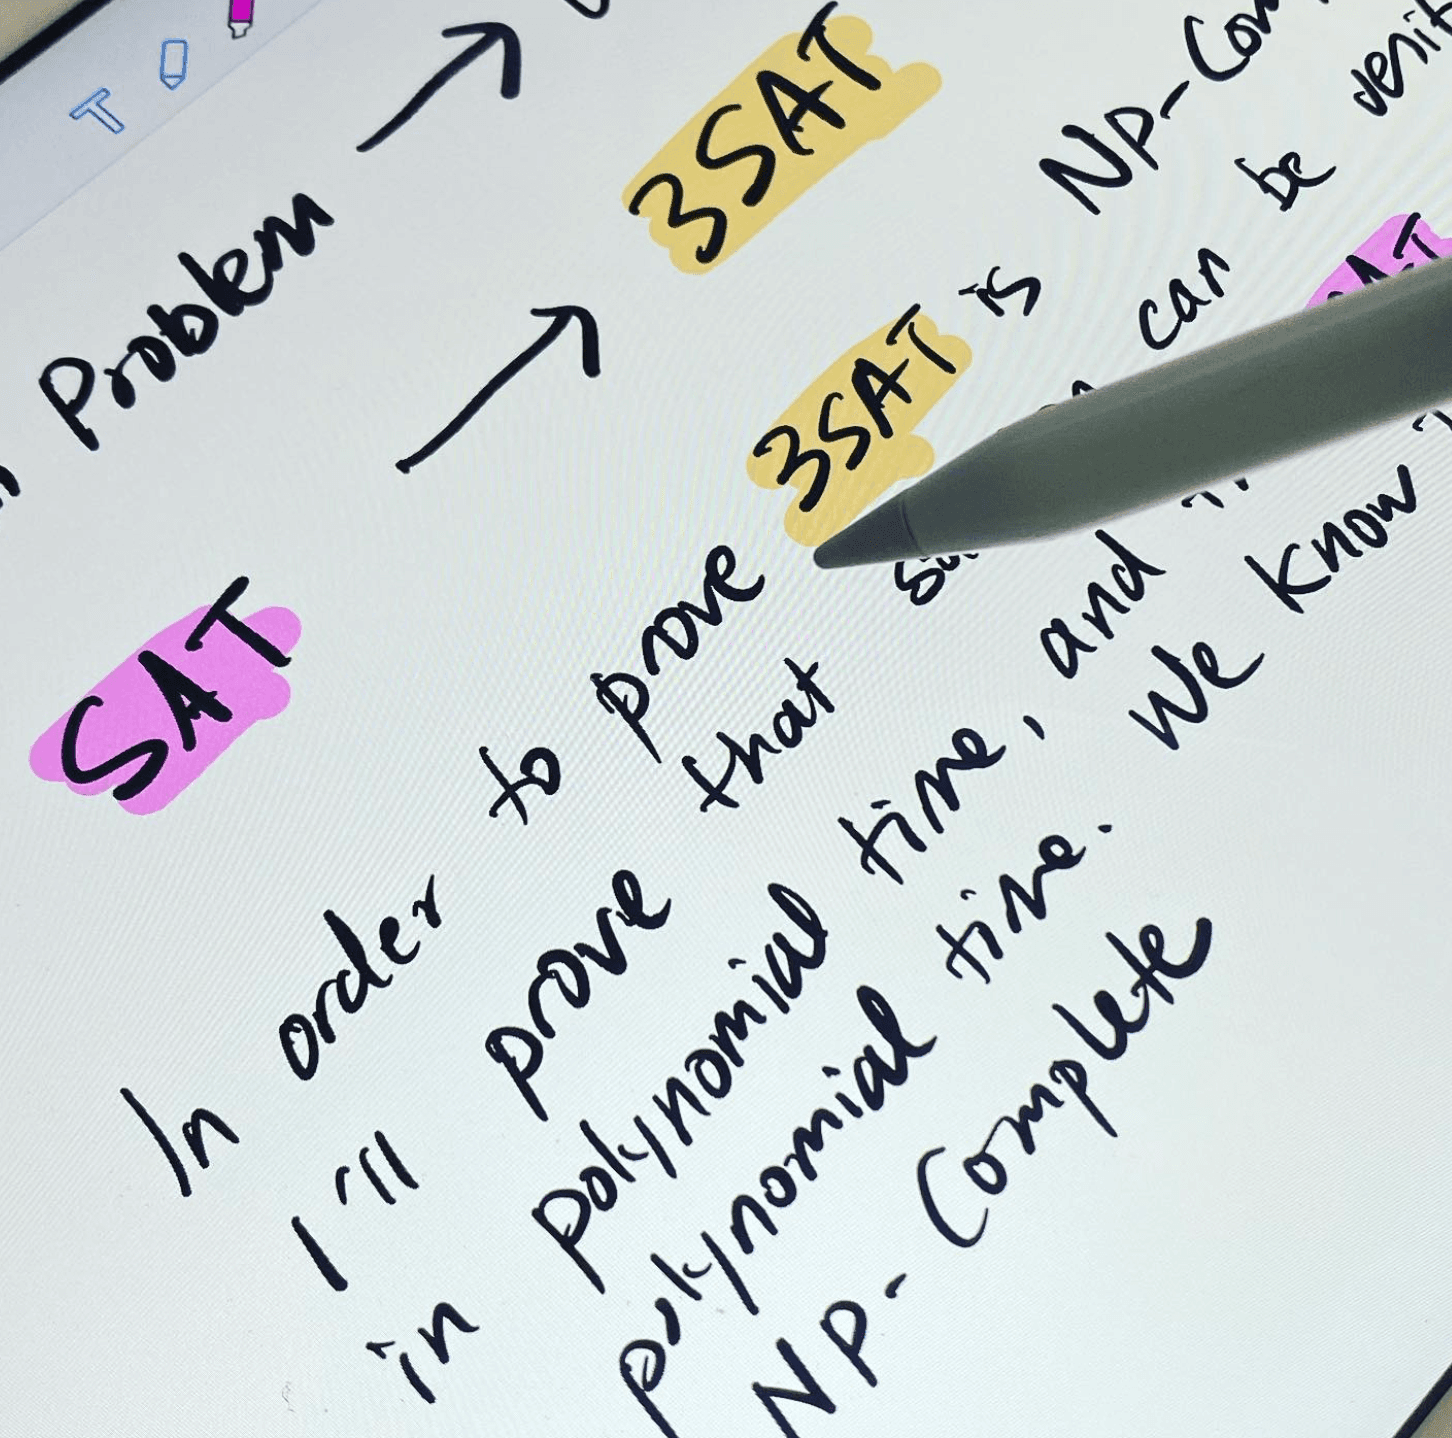 Problem →
SAT → 3SAT
In order to prove 3SAT is NP-Com
I'll prove that can be verif
in polynomial time, and
polynomial time. We know
NP-Complete